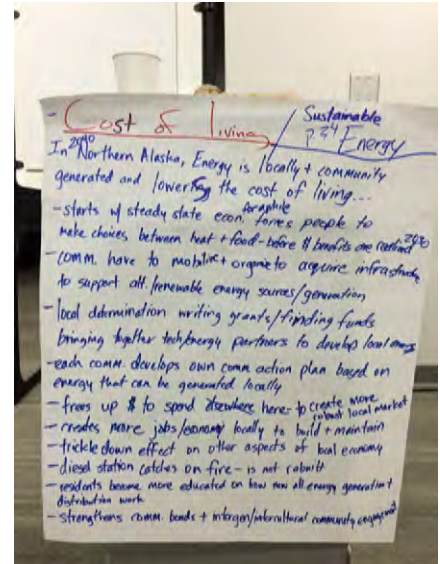 - Cost of living / Sustainable
P 34 Energy
In 2040 Northern Alaska, Energy is locally + community
generated and lowering the cost of living...
- starts w/ steady state econ. for awhile forces people to
make choices between heat + food - before $ benefits are realized 2030
- comm. have to mobilize + organize to acquire infrastructure
to support alt/renewable energy sources/generation
- local determination writing grants/finding funds
bringing together tech/energy partners to develop local energy
- each comm. develops own comm action plan based on
energy that can be generated locally
- frees up $ to spend elsewhere here - to create more
robust local market
- creates more jobs/economy locally to build + maintain
- trickle down effect on other aspects of local economy
- diesel station catches on fire - is not rebuilt
- residents become more educated on how new alt energy generation +
distribution work
- strengthens comm. bonds + intergen/intercultural community engagement